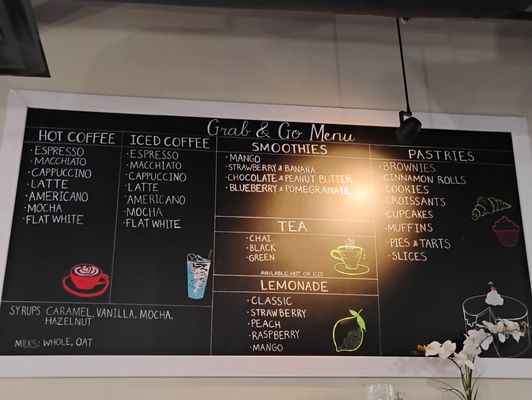 Grab & Go Menu
HOT COFFEE
· ESPRESSO
· MACCHIATO
· CAPPUCCINO
· LATTE
· AMERICANO
· MOCHA
· FLAT WHITE
ICED COFFEE
· ESPRESSO
· MACCHIATO
· CAPPUCCINO
· LATTE
· AMERICANO
· MOCHA
· FLAT WHITE
SYRUPS: CARAMEL, VANILLA, MOCHA,
HAZELNUT
MILKS: WHOLE, OAT
SMOOTHIES
· MANGO
· STRAWBERRY & BANANA
· CHOCOLATE & PEANUT BUTTER
· BLUEBERRY & POMEGRANATE
TEA
· CHAI
· BLACK
· GREEN
AVAILABLE HOT OR ICED
LEMONADE
· CLASSIC
· STRAWBERRY
· PEACH
· RASPBERRY
· MANGO
PASTRIES
· BROWNIES
· CINNAMON ROLLS
· COOKIES
· CROISSANTS
· CUPCAKES
· MUFFINS
· PIES & TARTS
· SLICES